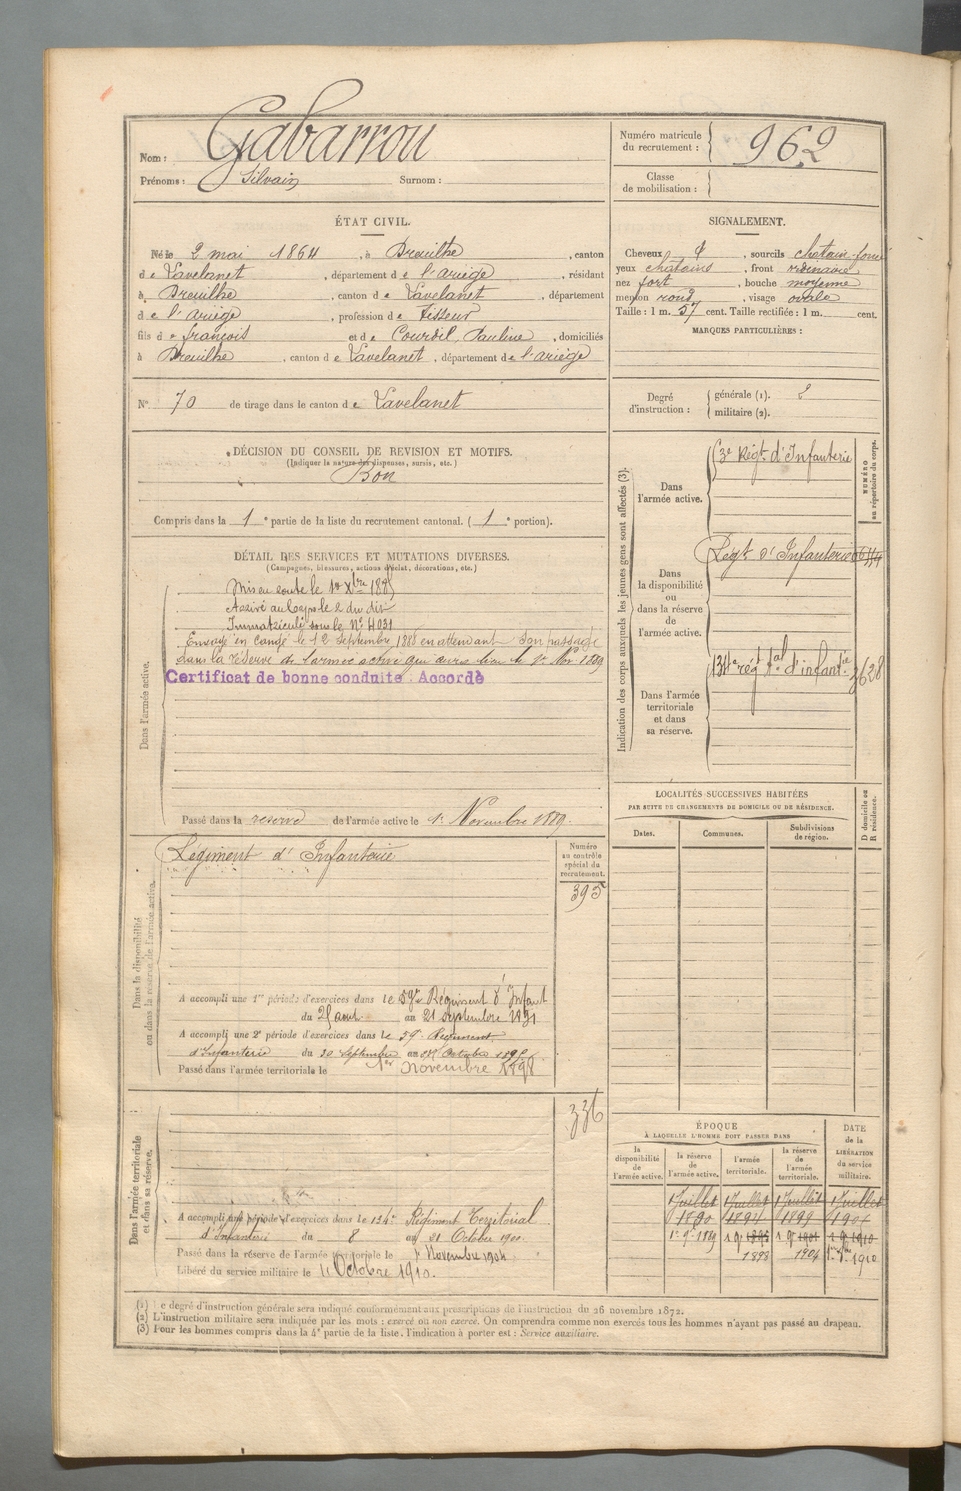 Nom : Gabarrou
Prénoms : Silvain Surnom :
Numéro matricule du recrutement : 962
Classe de mobilisation :
ÉTAT CIVIL.
Né le 2 mai 1864, à Dreuilhe, canton
de Lavelanet, département de l'ariège, résidant
à Dreuilhe, canton de Lavelanet, département
de l'ariège, profession de Tisseur
fils de françois et de Courdil, Pauline, domiciliés
à Dreuilhe, canton de Lavelanet, département de l'ariège
SIGNALEMENT.
Cheveux, sourcils chatain foncé
yeux chatains, front ordinaire
nez fort, bouche moyenne
menton rond, visage ovale
Taille : 1 m. 57 cent. Taille rectifiée : 1 m. cent.
MARQUES PARTICULIÈRES :
N° 70 de tirage dans le canton de Lavelanet
Degré d'instruction : générale (1).
militaire (2).
DÉCISION DU CONSEIL DE REVISION ET MOTIFS.
(Indiquer la nature des dispenses, sursis, etc.)
Bon
Compris dans la 1e partie de la liste du recrutement cantonal. (1e portion).
DÉTAIL DES SERVICES ET MUTATIONS DIVERSES.
(Campagnes, blessures, actions d'éclat, décorations, etc.)
Dans l'armée active.
Mis en route le 1er Xbre 188
Arrivé au Corps le 2 du dit
Immatriculé sous le N° 4031
Envoyé en Congé le 12 Septembre 1888 en attendant Son passage
dans la réserve de l'armée active qui aura lieu le 1er Nov 1889
Certificat de bonne conduite : Accordé
Passé dans la reserve de l'armée active le 1er Novembre 1889.
Indication des corps auxquels les jeunes gens sont affectés (3).
NUMÉRO au répertoire du corps.
Dans l'armée active.
3e Régt. d'Infanterie
Dans la disponibilité ou dans la réserve de l'armée active.
Régt d'Infanterie
Dans l'armée territoriale et dans sa réserve.
134e régt tal d'infantie 3628
LOCALITÉS SUCCESSIVES HABITÉES
PAR SUITE DE CHANGEMENTS DE DOMICILE OU DE RÉSIDENCE.
Dates. Communes. Subdivisions de région. D domicile ou R résidence.
Dans la disponibilité ou dans la réserve de l'armée active.
Régiment d'Infanterie
Numéro au contrôle spécial du recrutement.
395
A accompli une 1re période d'exercices dans le 59e Régiment d'Infant
du 25 aout au 21 septembre 1891
A accompli une 2e période d'exercices dans le 59e Régiment
d'Infanterie du 30 Septembre au Octobre
Passé dans l'armée territoriale le 1er novembre 1898
Dans l'armée territoriale et dans sa réserve.
336
A accompli une période d'exercices dans le 134e Régiment Territorial
d'Infanterie du 8 au 21 Octobre 1900.
Passé dans la réserve de l'armée territoriale le 1er Novembre 1904
Libéré du service militaire le 1er Octobre 1910.
ÉPOQUE
À LAQUELLE L'HOMME DOIT PASSER DANS
la disponibilité de l'armée active. la réserve de l'armée active. l'armée territoriale. la réserve de l'armée territoriale.
DATE de la LIBÉRATION du service militaire.
1 Juillet 1 Juillet 1 Juillet 1 Juillet
1890
1893 1904 1910
(1) Le degré d'instruction générale sera indiqué conformément aux prescriptions de l'instruction du 26 novembre 1872.
(2) L'instruction militaire sera indiquée par les mots : exercé ou non exercé. On comprendra comme non exercés tous les hommes n'ayant pas passé au drapeau.
(3) Pour les hommes compris dans la 4e partie de la liste, l'indication à porter est : Service auxiliaire.